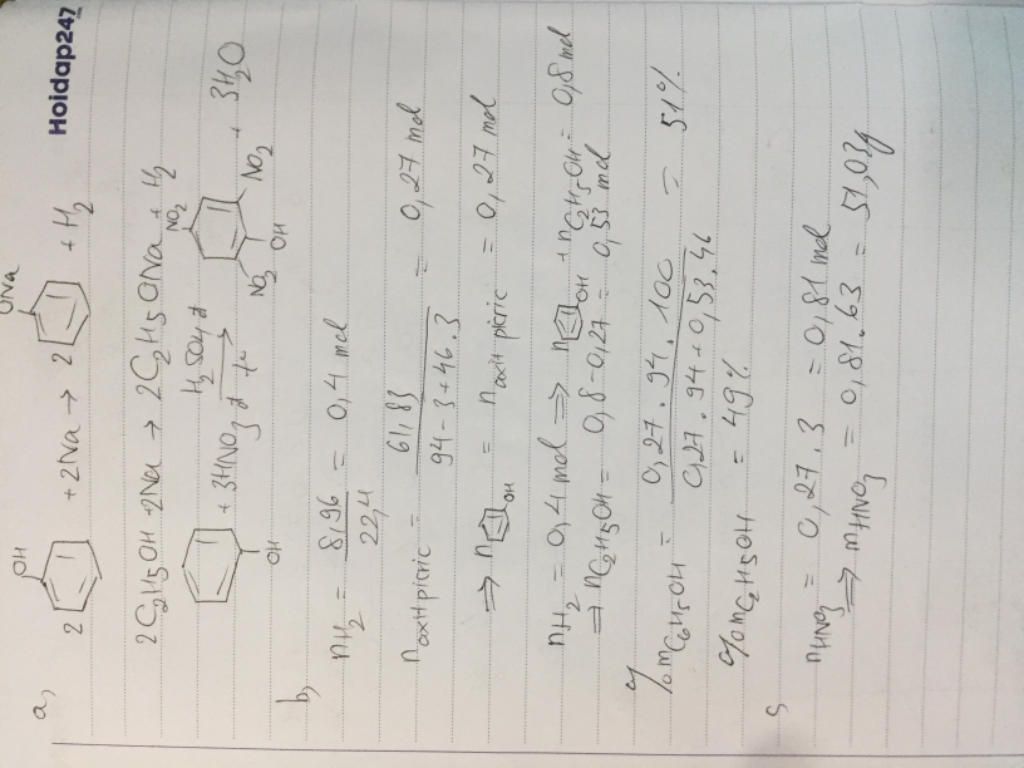 Hoidap247
a,
2 OH + 2Na → 2 ONa + H2
2C2H5OH + 2Na → 2C2H5ONa + H2
OH + 3HNO3 đ H2SO4 đ t° → NO2 NO2 OH NO2 + 3H2O
b,
nH2 = 8,96 / 22,4 = 0,4 mol
n axit picric = 61,83 / 94 - 3 + 46.3 = 0,27 mol
⇒ n OH = n axit picric = 0,27 mol
nH2 = 0,4 mol ⇒ n OH + nC2H5OH = 0,8 mol
⇒ nC2H5OH = 0,8 - 0,27 = 0,53 mol
%mC6H5OH = 0,27 . 94 . 100 / 0,27 . 94 + 0,53 . 46 = 51%
%mC2H5OH = 49%
c,
nHNO3 = 0,27 . 3 = 0,81 mol
⇒ mHNO3 = 0,81 . 63 = 51,03g